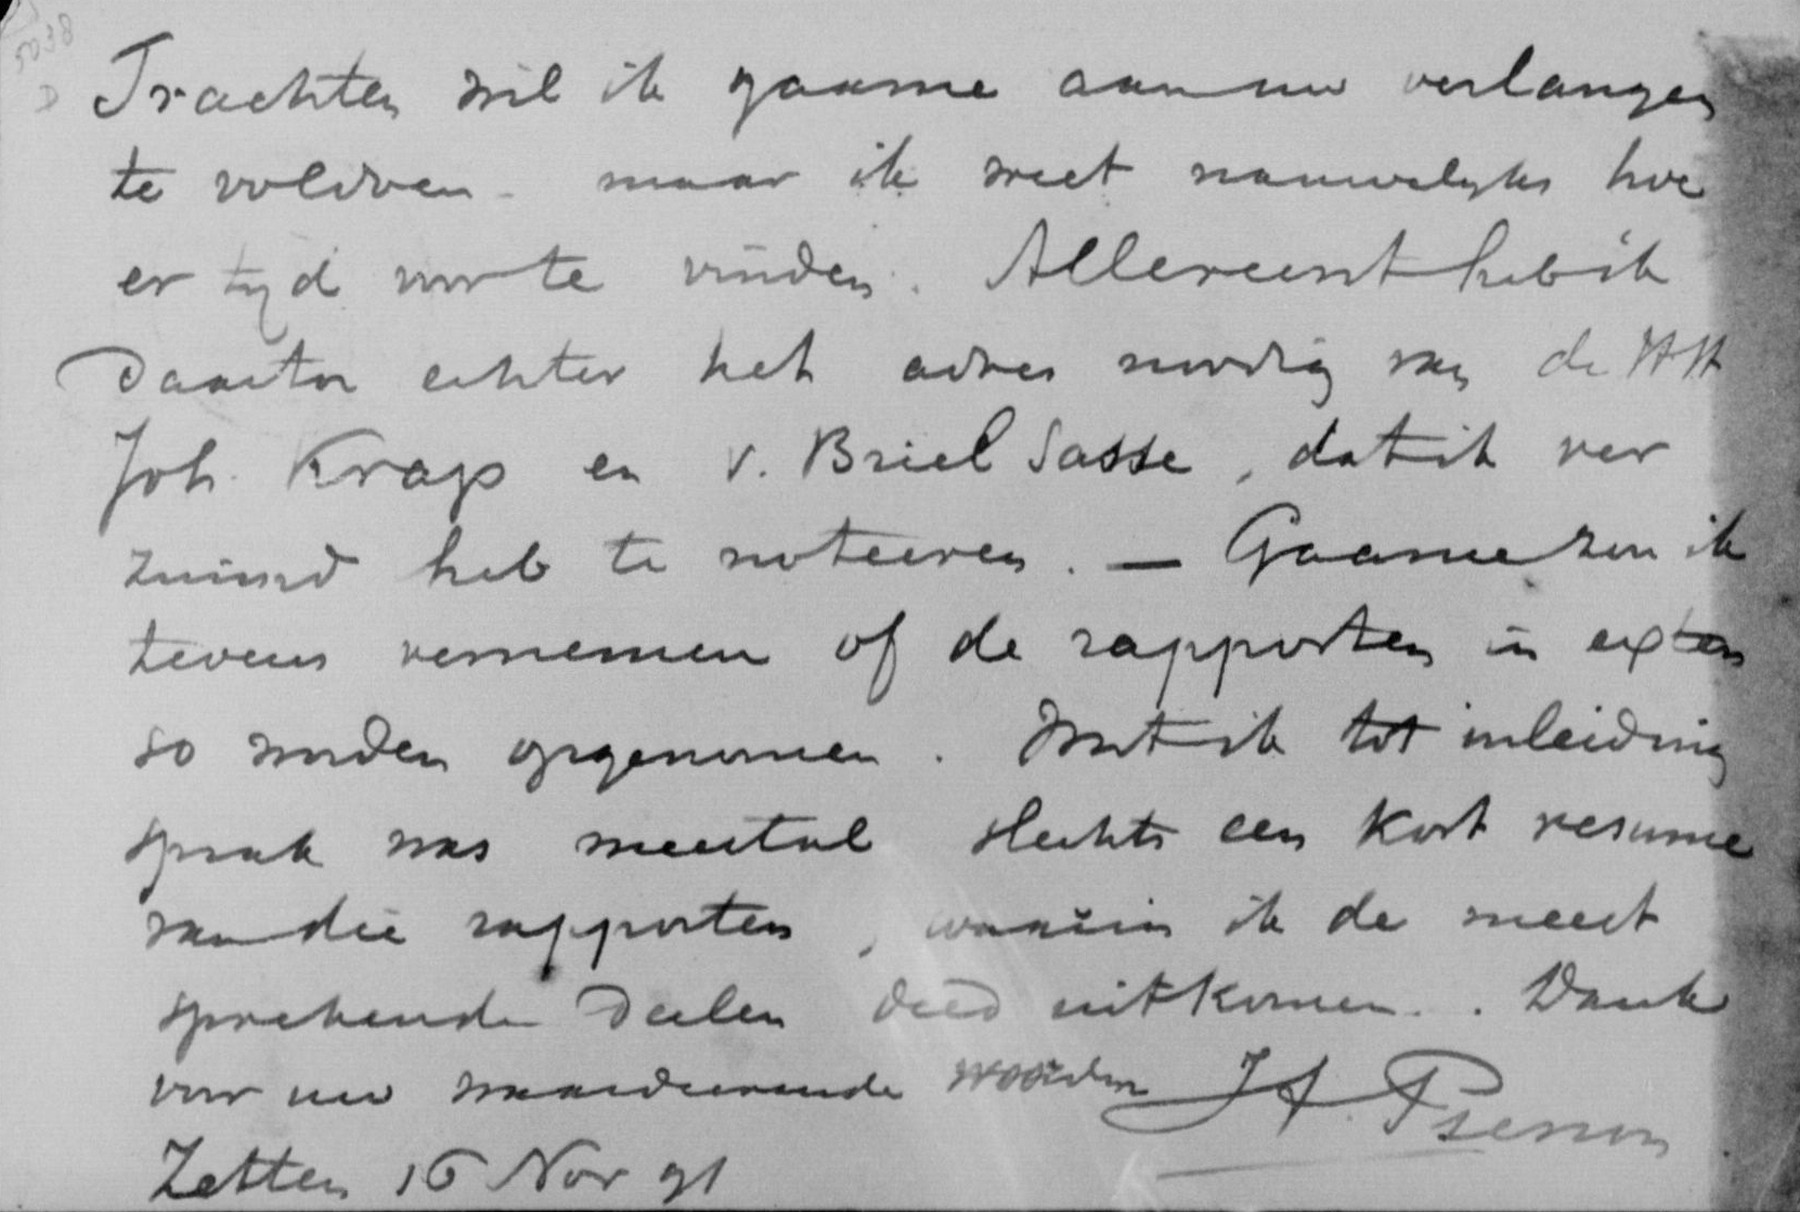 5038
Trachten wil ik gaarne aan uw verlangen
te voldoen - maar ik weet nauwelyks hoe
er tyd voor te vinden. Allereerst heb ik
daartoe echter het adres noodig van de HH
Joh. Krap en v. Briel Sasse, dat ik ver
zuimd heb te noteeren. — Gaarne zou ik
tevens vernemen of de rapporten in exten
so worden opgenomen. Wat ik tot inleiding
sprak was meestal slechts een kort resumé
van die rapporten, waarin ik de meest
sprekende deelen deed uitkomen. Dank
voor uw waardeerende woorden J A Pierson
Zetten 16 Nov 91